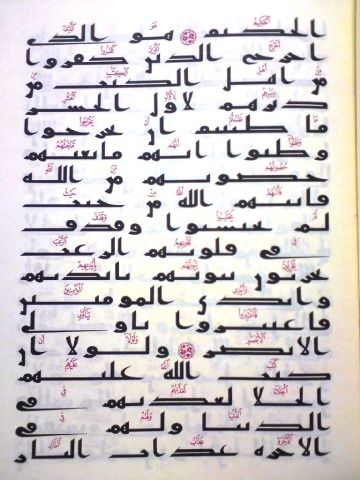 الحكيم ۝ هو الذي
اخرج الذين كفروا
من اهل الكتب من
ديرهم لاول الحشر
ما ظننتم ان يخرجوا
وظنوا انهم مانعتهم
حصونهم من الله
فاتيهم الله من حيث
لم يحتسبوا وقذف
في قلوبهم الرعب
يخربون بيوتهم بايديهم
وايدي المومنين
فاعتبروا ياولي
الابصر ۝ ولولا ان
كتب الله عليهم
الجلا لعذبهم في
الدنيا ولهم في
الاخره عذاب النار